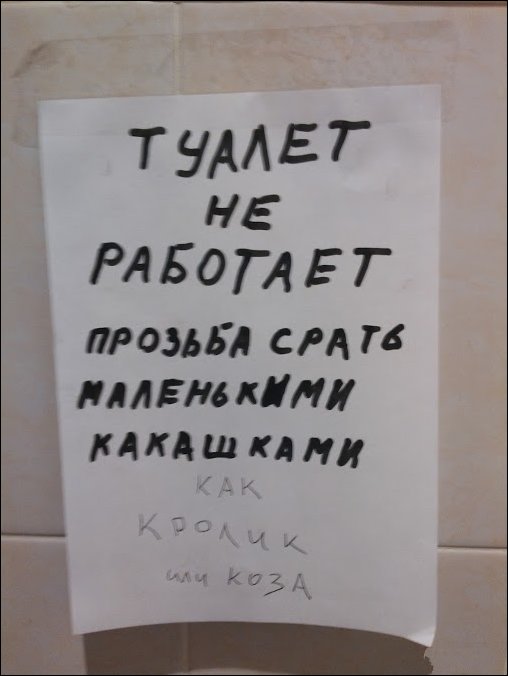 ТУАЛЕТ
НЕ
РАБОТАЕТ
ПРОЗЬБА СРАТЬ
МАЛЕНЬКИМИ
КАКАШКАМИ
КАК
КРОЛИК
или КОЗА